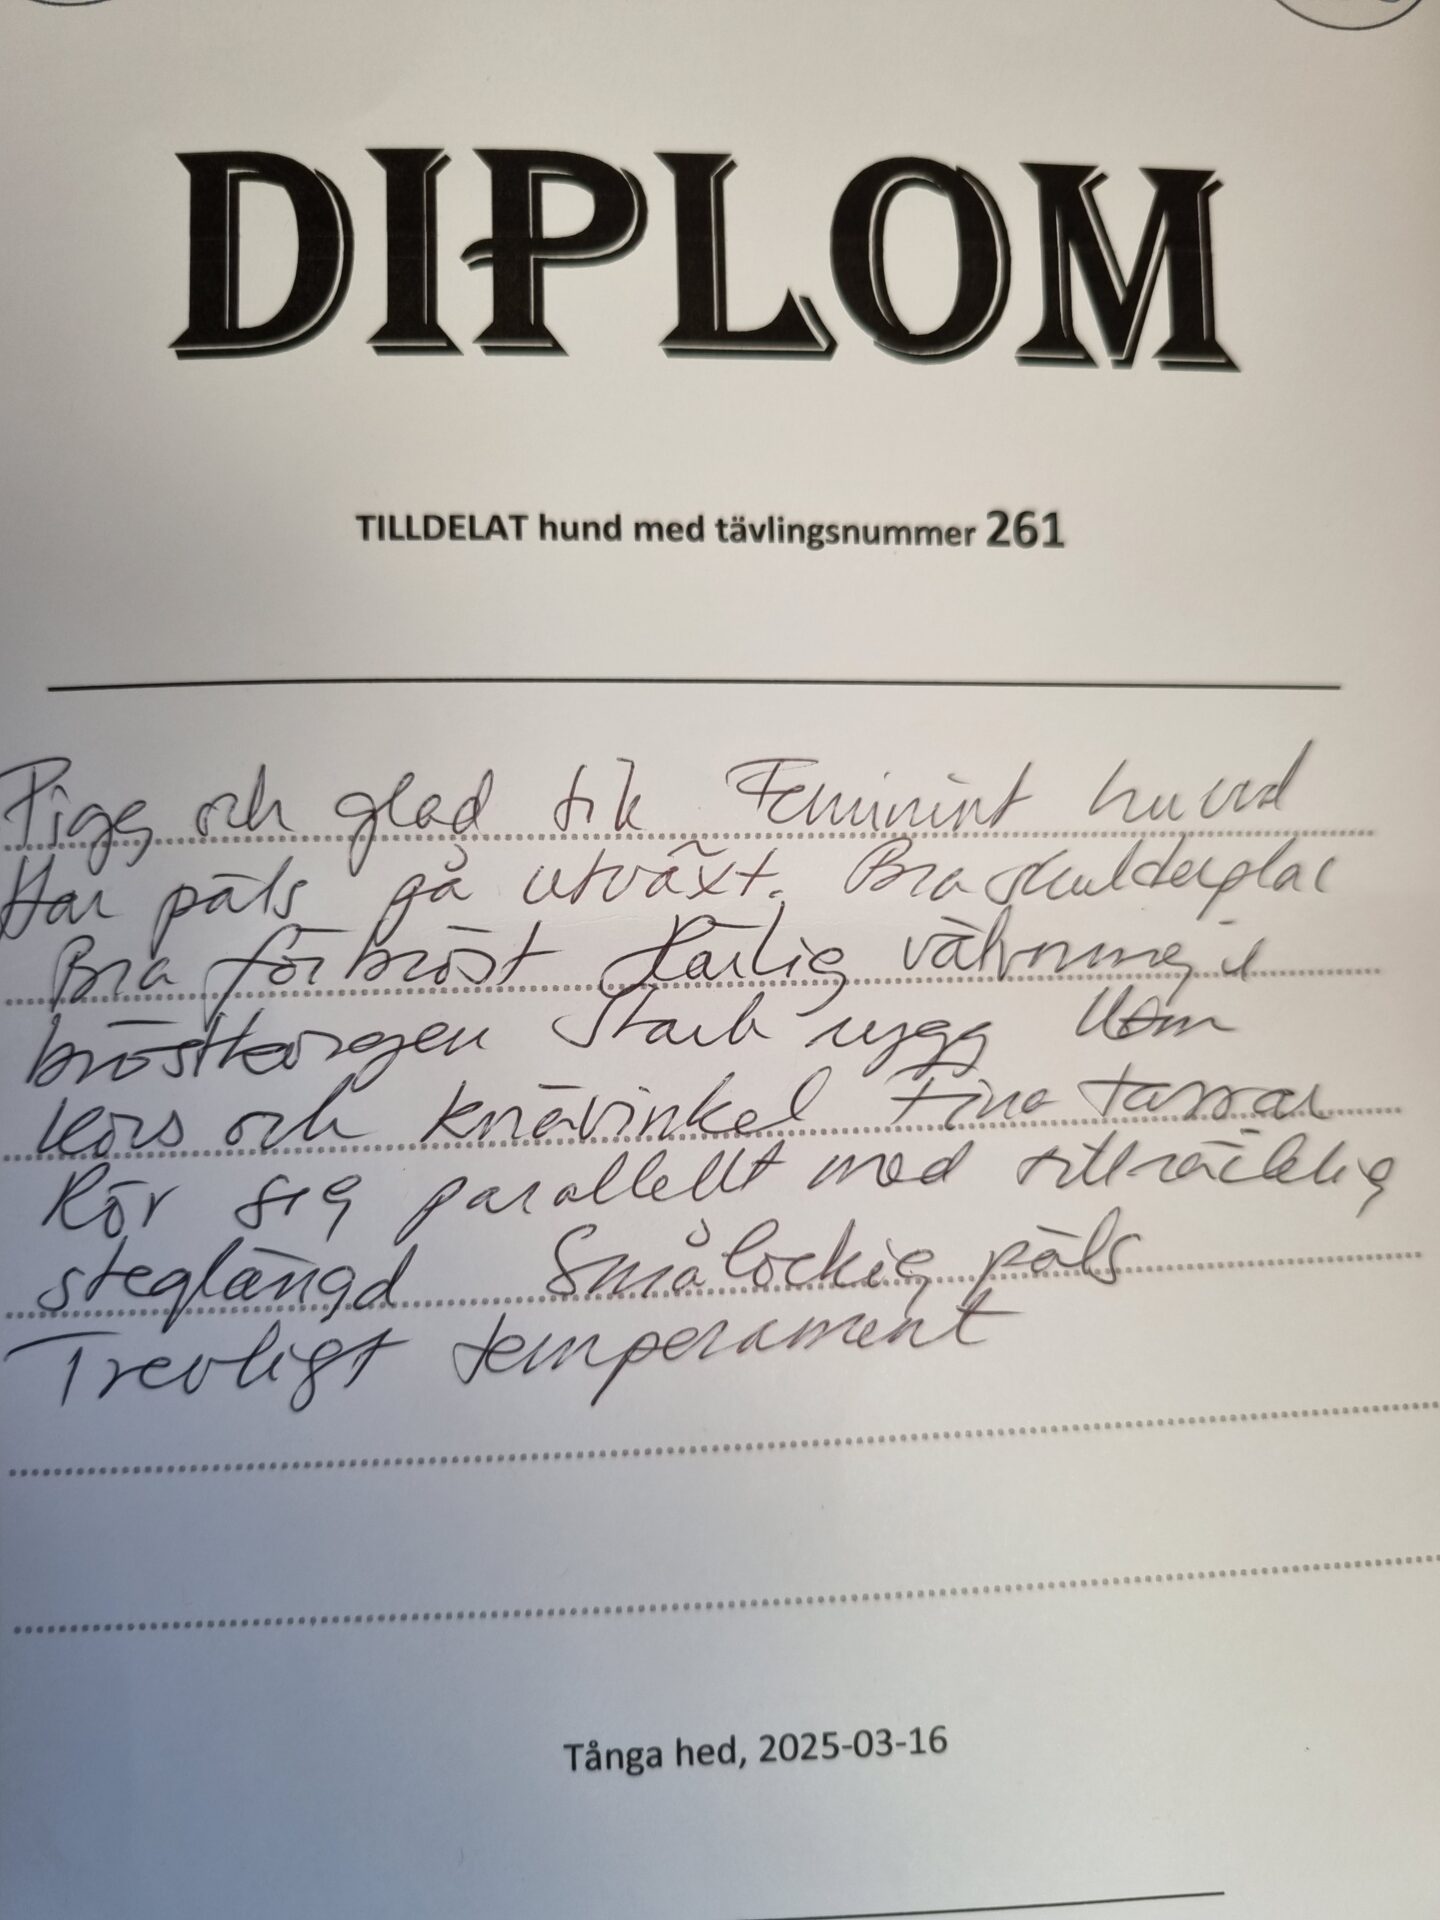 DIPLOM
TILLDELAT hund med tävlingsnummer 261
Pigg och glad tik Feminint huvud
Har päls på utväxt. Bra skulderplac
Bra förbröst Härlig välvning i
bröstkorgen Stark rygg
Kors och knävinkel Fina tassar
Rör sig parallellt med tillräcklig
steglängd Smålockig päls
Trevligt temperament
Tånga hed, 2025-03-16